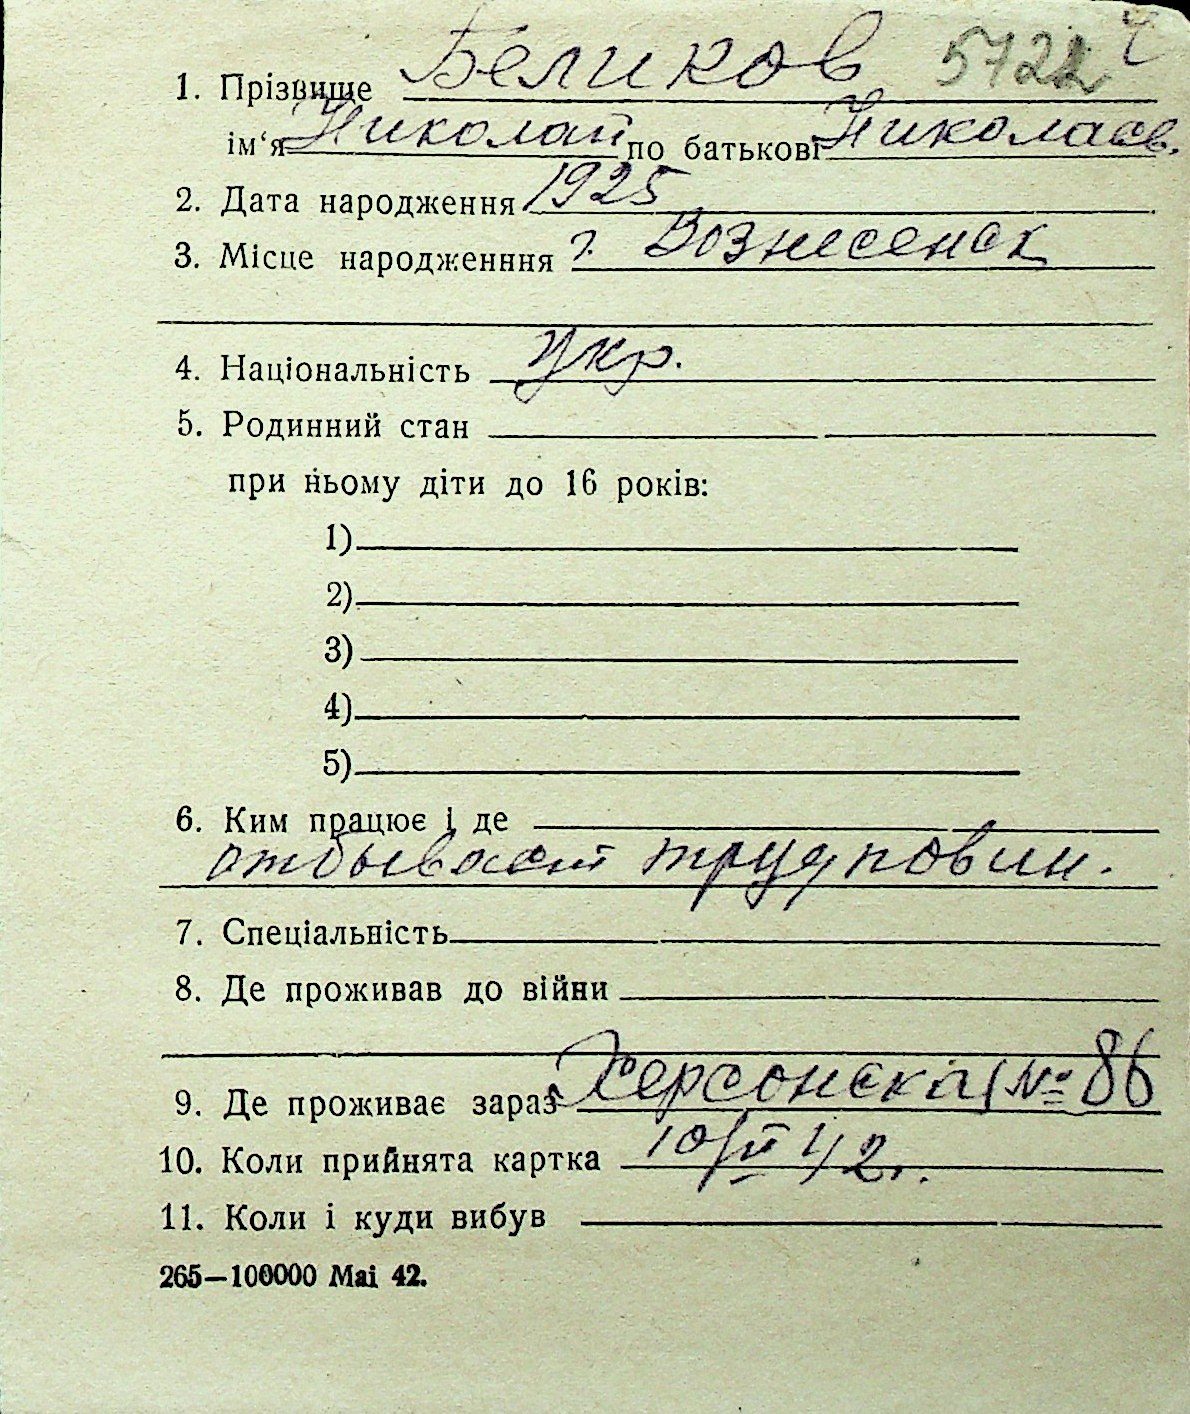 1. Прізвище Беликов 5722 ч
ім‘я Николай по батькові Николаев.
2. Дата народження 1925
3. Місце народженння г. Вознесенск
4. Національність укр.
5. Родинний стан
при ньому діти до 16 років:
1)
2)
3)
4)
5)
6. Ким працює і де
отбывает трудповин.
7. Спеціальність
8. Де проживав до війни
9. Де проживає зараз Херсонская №86
10. Коли прийнята картка 42.
11. Коли і куди вибув
265—100000 Mai 42.